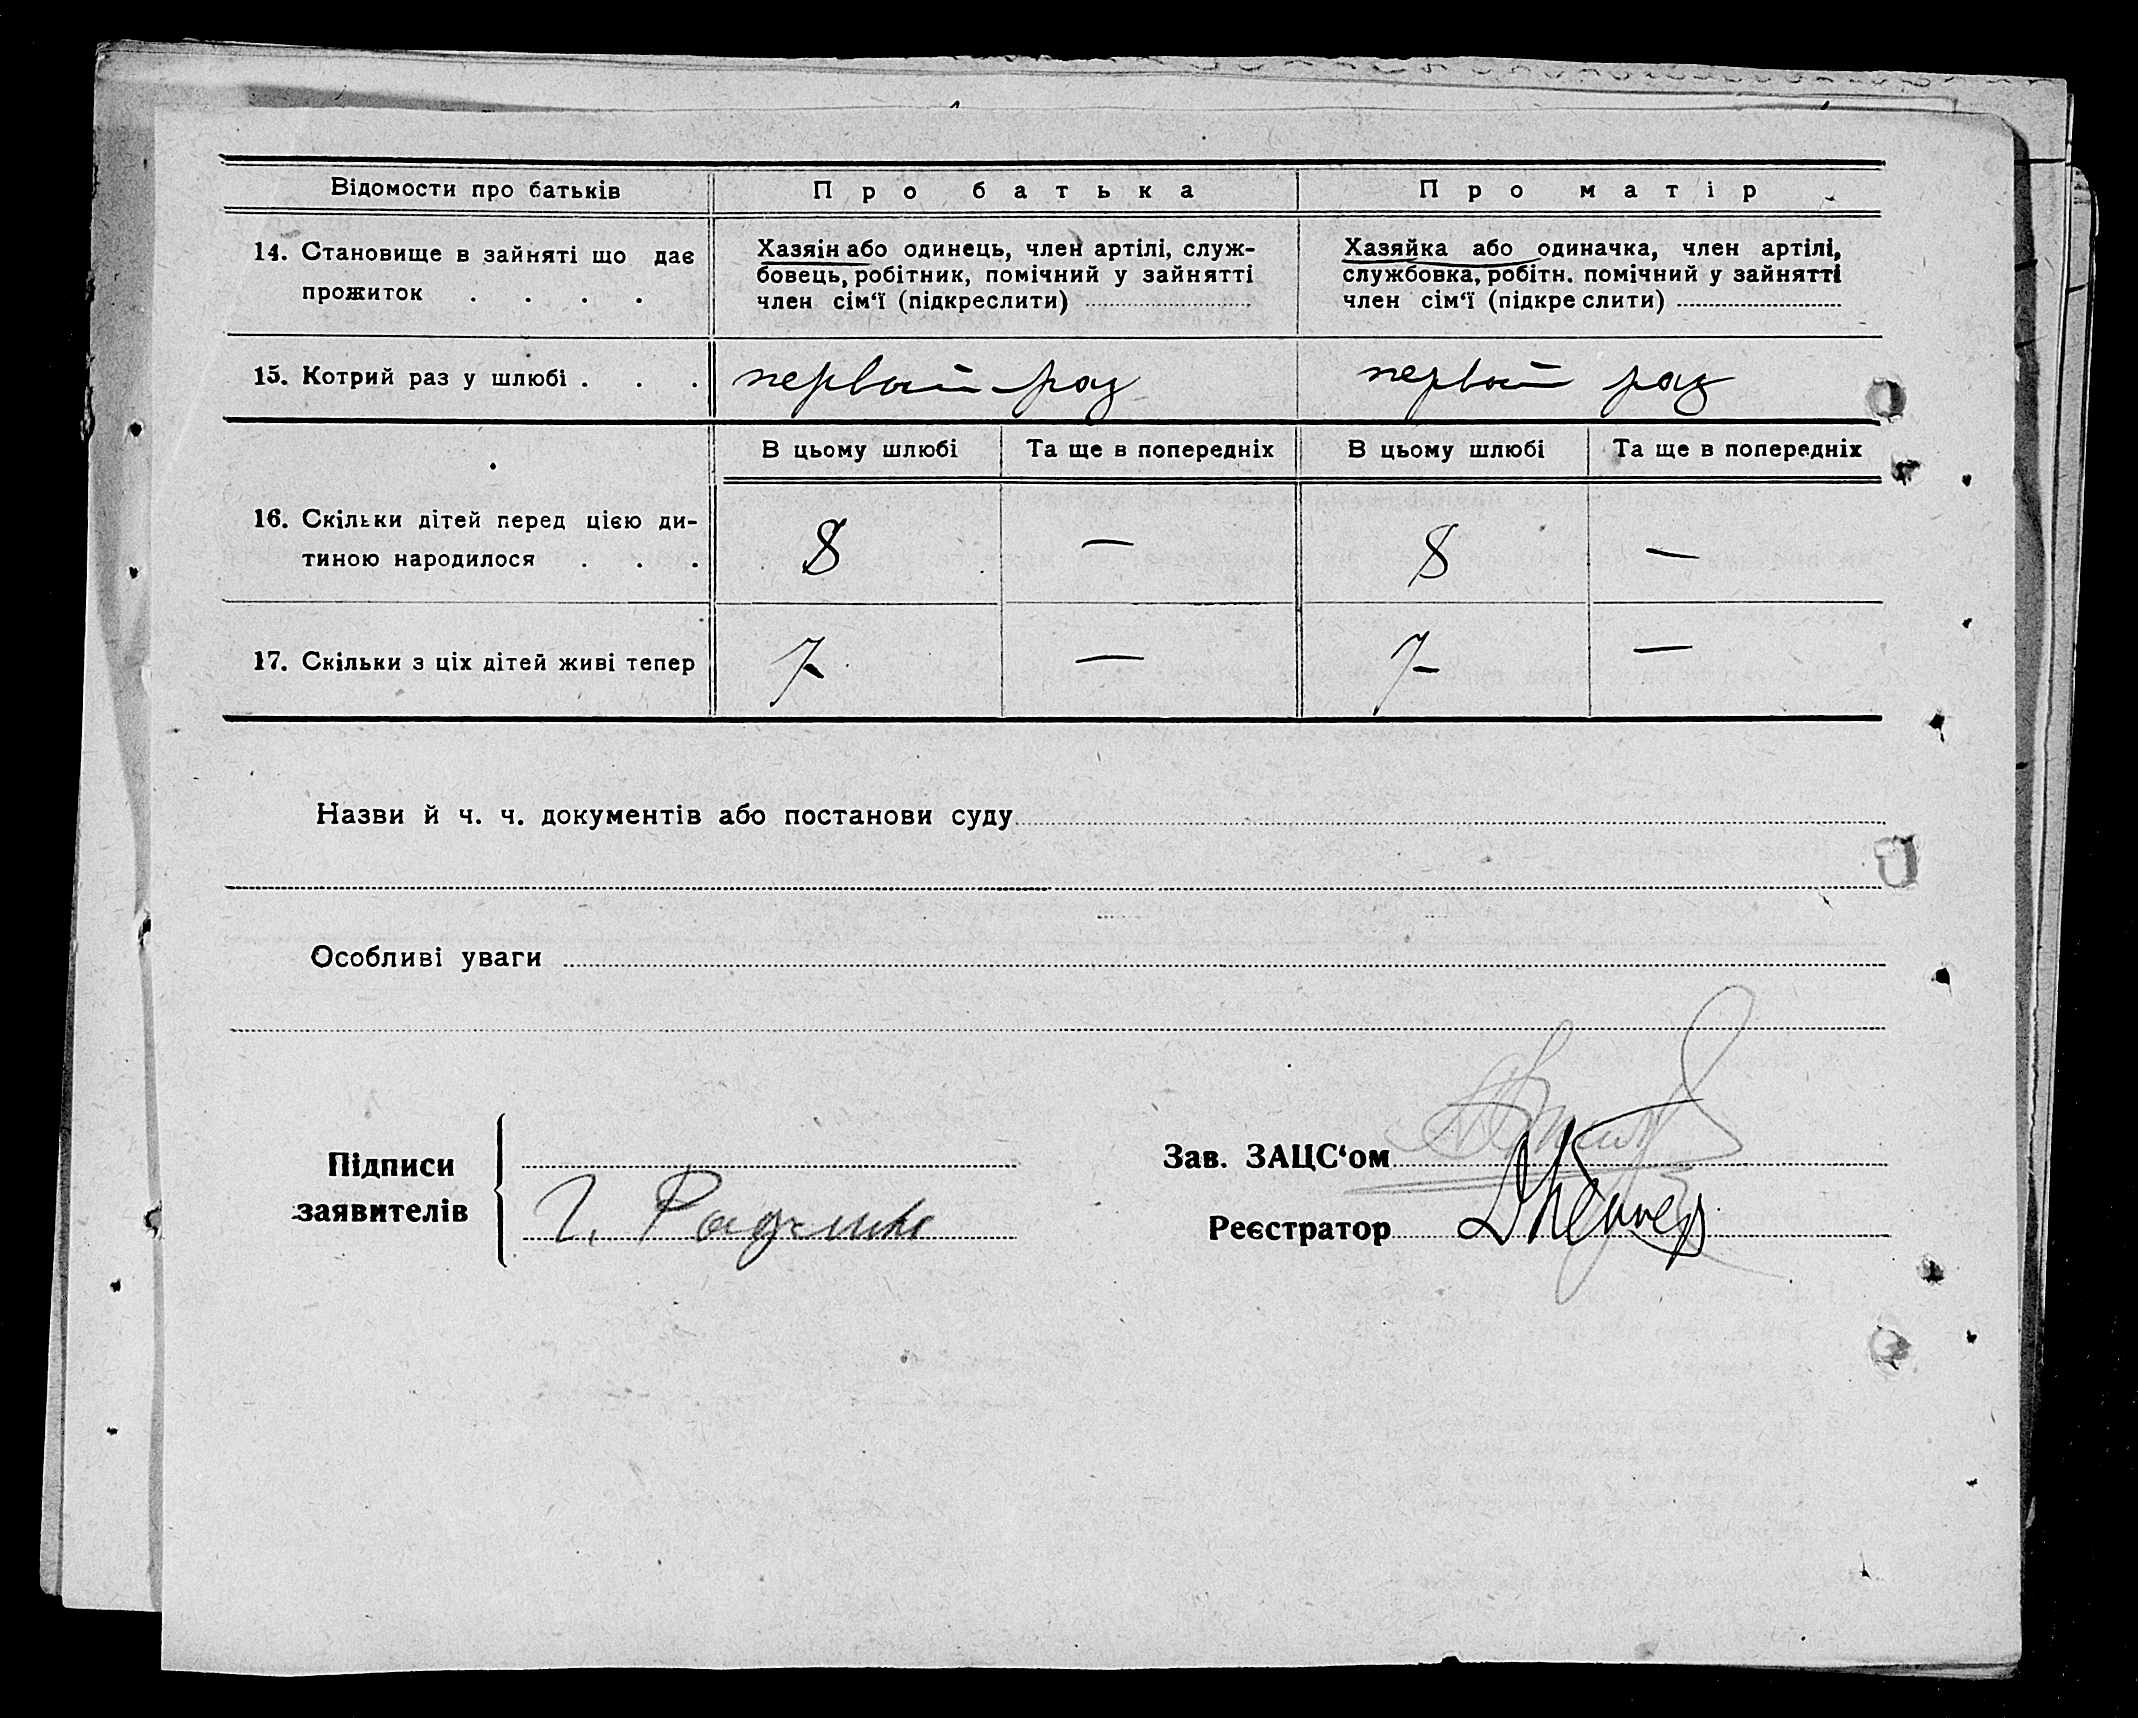 Відомости про батьків
Про батька
Про матір
14. Становище в зайняті що дає
прожиток . . . .
Хазяін або одинець, член артілі, служ-
бовець, робітник, помічний у зайнятті
член сім‘ї (підкреслити)
Хазяйка або одиначка, член артілі,
службовка, робітн. помічний у зайнятті
член сім‘ї (підкреслити)
15. Котрий раз у шлюбі . . .
первый раз
первый раз
В цьому шлюбі
Та ще в попередніх
В цьому шлюбі
Та ще в попередніх
16. Скільки дітей перед цією ди-
тиною народилося . . .
8
—
8
—
17. Скільки з ціх дітей живі тепер
7
—
7
—
Назви й ч. ч. документів або постанови суду
Особливі уваги
Підписи
заявителів
Зав. ЗАЦС‘ом
Реєстратор